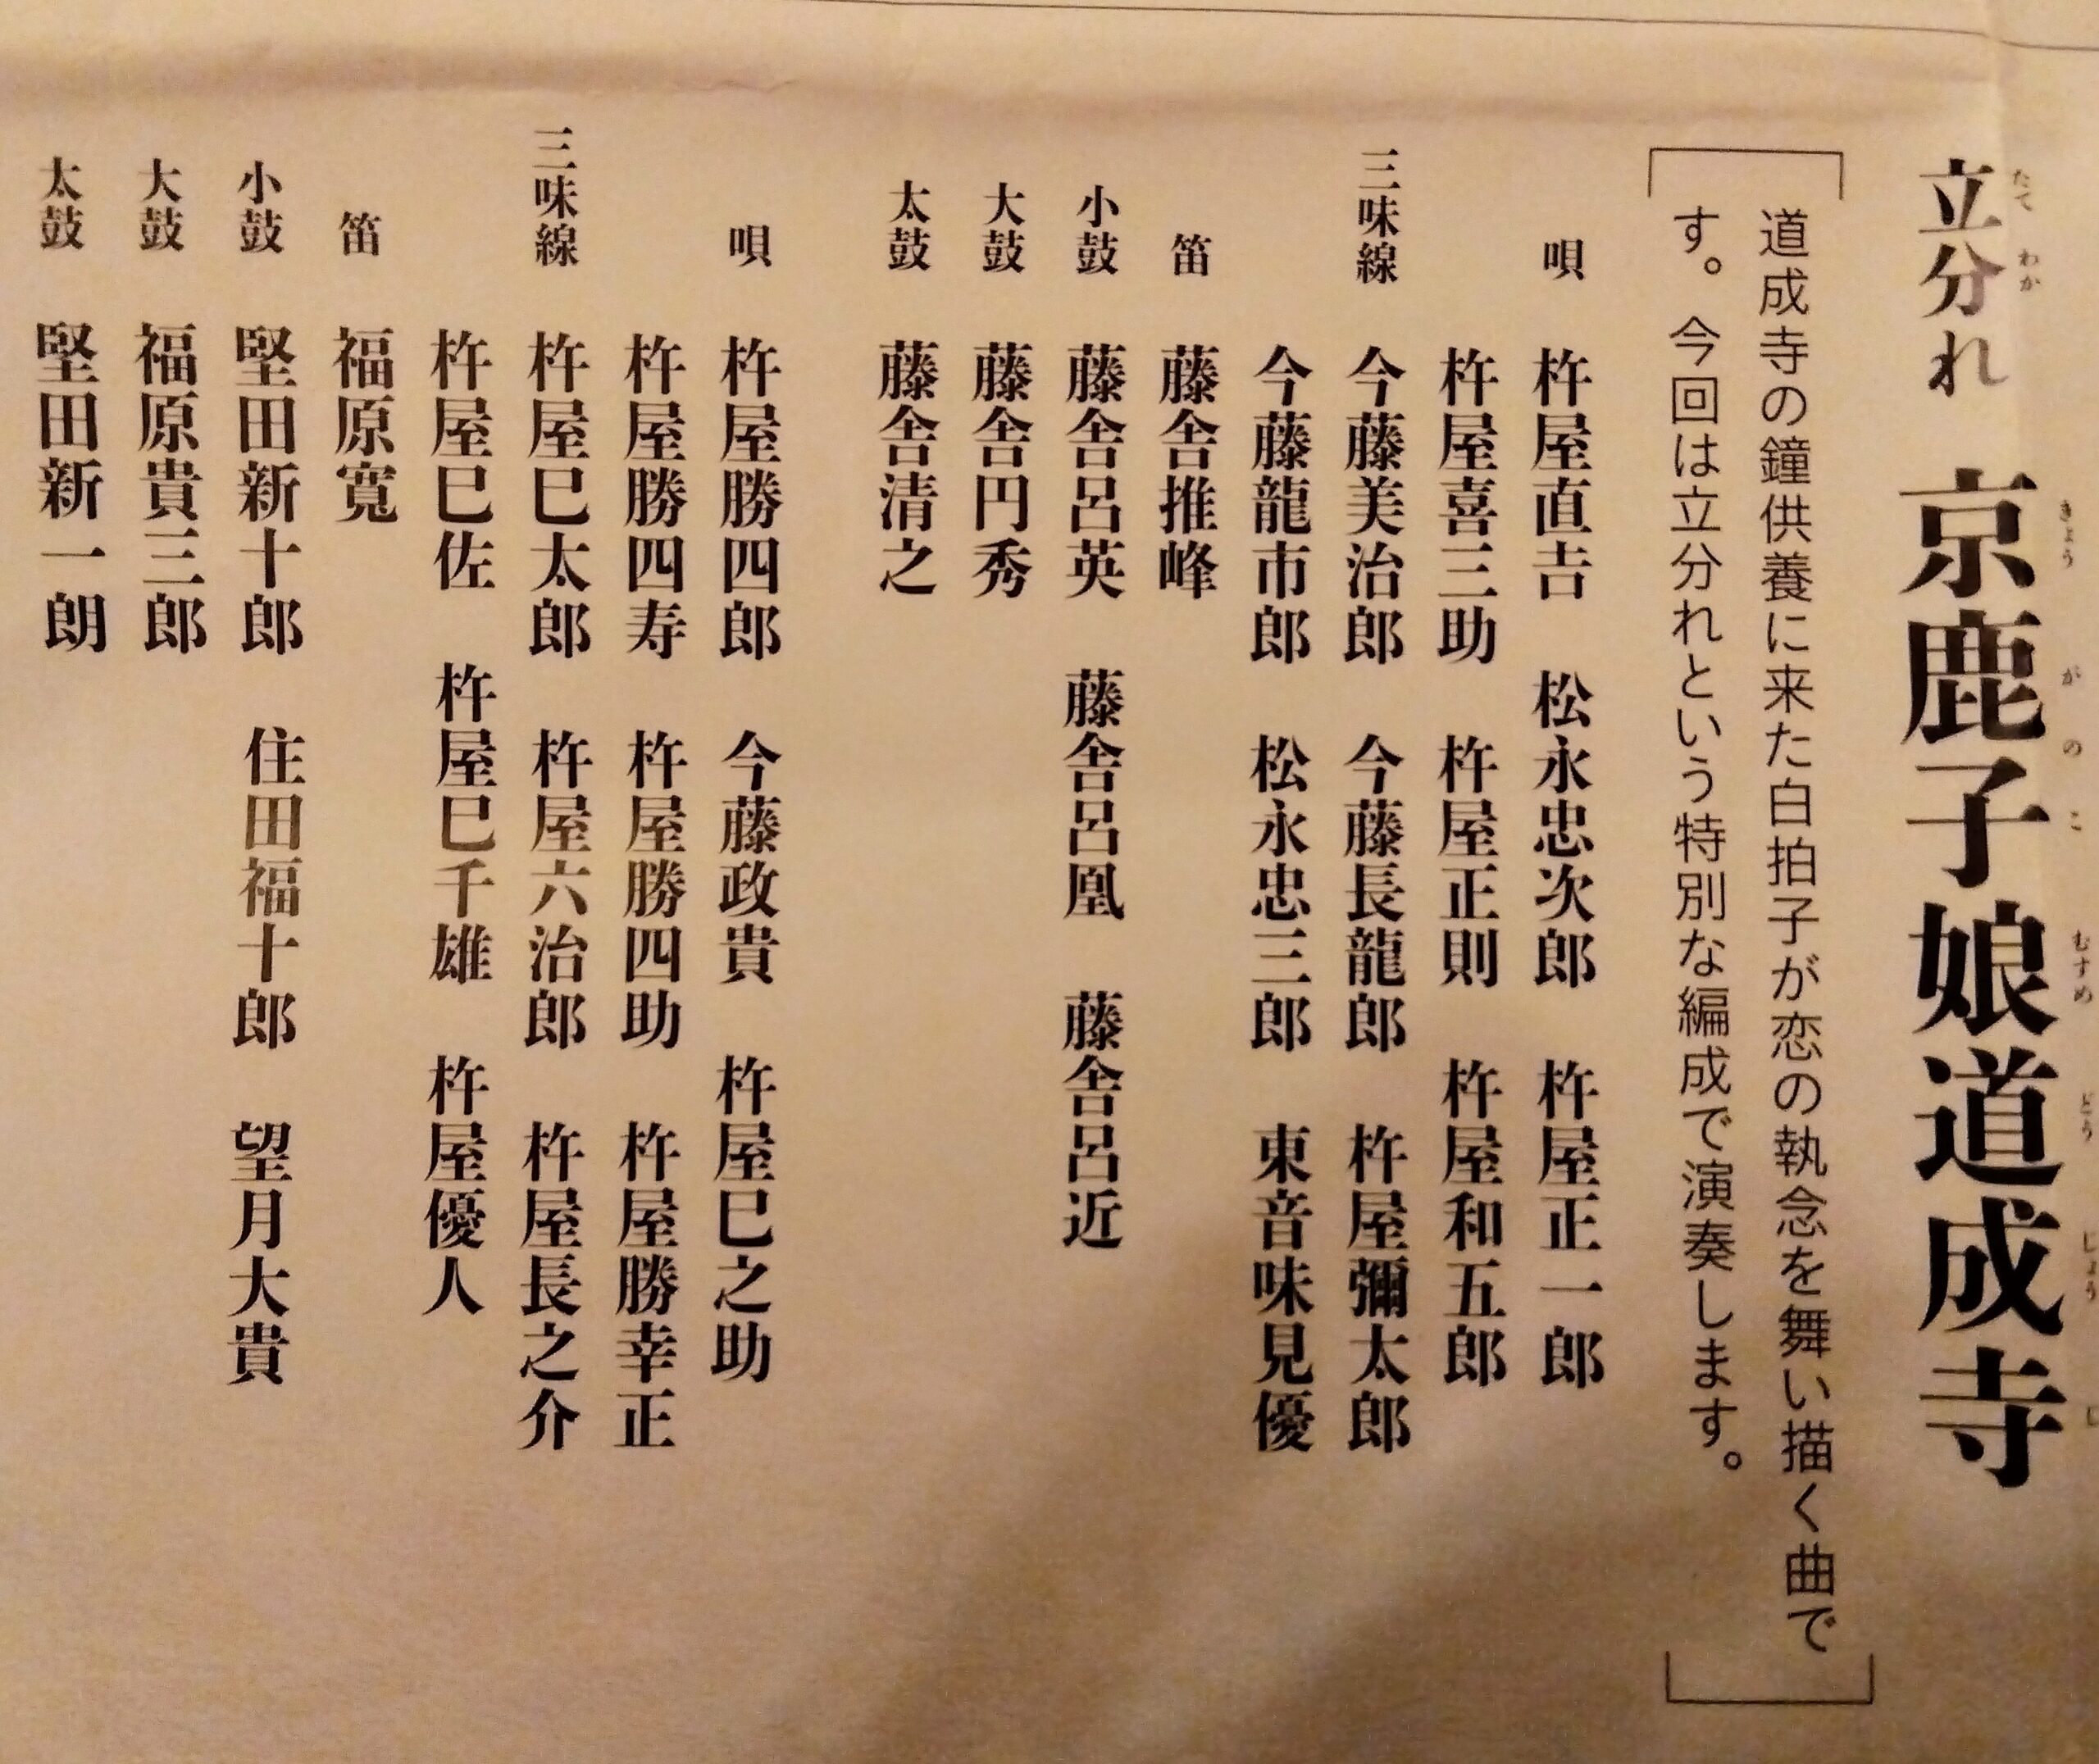 立分れ 京鹿子娘道成寺
たて わか きょう が の こ むすめ どう じょう じ
道成寺の鐘供養に来た白拍子が恋の執念を舞い描く曲で
す。今回は立分れという特別な編成で演奏します。
唄 杵屋直𠮷 松永忠次郎 杵屋正一郎
杵屋喜三助 杵屋正則 杵屋和五郎
三味線 今藤美治郎 今藤長龍郎 杵屋彌太郎
今藤龍市郎 松永忠三郎 東音味見優
笛 藤舎推峰
小鼓 藤舎呂英 藤舎呂凰 藤舎呂近
大鼓 藤舎円秀
太鼓 藤舎清之
唄 杵屋勝四郎 今藤政貴 杵屋巳之助
杵屋勝四寿 杵屋勝四助 杵屋勝幸正
三味線 杵屋巳太郎 杵屋六治郎 杵屋長之介
杵屋巳佐 杵屋巳千雄 杵屋優人
笛 福原寛
小鼓 堅田新十郎 住田福十郎 望月大貴
大鼓 福原貴三郎
太鼓 堅田新一朗